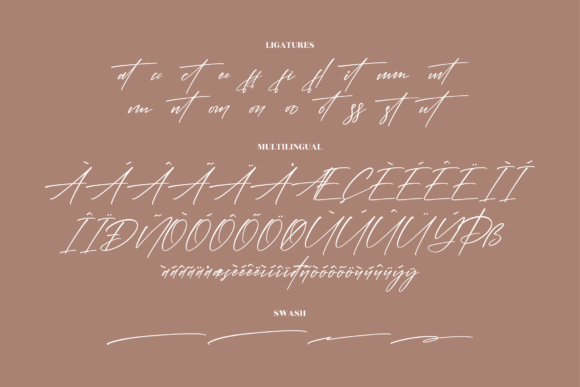 LIGATURES
at cc ct ee ff fi fl it mm mt
nn nt om on oo ot ss st ut
MULTILINGUAL
À Á Â Ã Ä Å Æ Ç È É Ê Ë Ì Í
Î Ï Ð Ñ Ò Ó Ô Õ Ö Ø Ù Ú Û Ü Ý Þ ß
àáâãäåæçèéêëìíîïðñòóôõöùúûüýÿ
SWASH